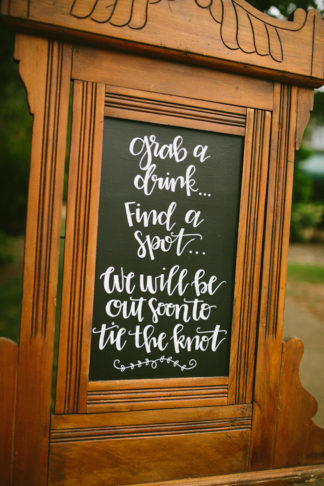 Grab a
drink...
Find a
spot...
We will be
out soon to
tie the knot